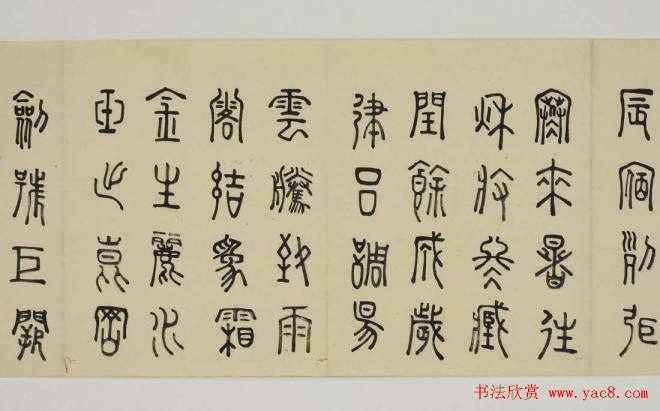 辰宿列張
寒來暑往
秋收冬藏
閏餘成歲
律呂調昜
雲騰致雨
露結為霜
金生麗水
玉出崑岡
劍號巨闕
书法欣赏 www.yac8.com